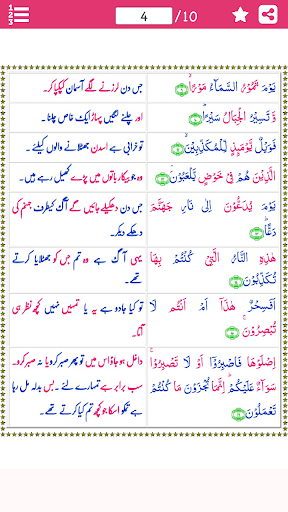 1 2 3
4 /10
يَّوْمَ تَمُوْرُ السَّمَآءُ مَوْرًاۙ
جس دن لرزنے لگے آسمان کپکپا کر۔
وَّ تَسِيْرُ الْجِبَالُ سَيْرًاؕ
اور چلنے لگیں پہاڑ ایک خاص چلنا۔
فَوَيْلٌ يَّوْمَئِذٍ لِّلْمُكَذِّبِيْنَۙ
تو خرابی ہے اسدن جھٹلانے والوں کیلئے۔
الَّذِيْنَ هُمْ فِيْ خَوْضٍ يَّلْعَبُوْنَۘ
جو بیکار باتوں میں پڑے کھیل رہے ہیں۔
يَوْمَ يُدَعُّوْنَ اِلٰى نَارِ جَهَنَّمَ
دَعًّاؕ
جس دن دھکیلے جائیں گے آگ کیطرف جہنم کی
دھکے دیکر۔
هٰذِهِ النَّارُ الَّتِيْ كُنْتُمْ بِهَا
تُكَذِّبُوْنَ
یہی آگ ہے وہ تم جس کو جھٹلایا کرتے
تھے۔
اَفَسِحْرٌ هٰذَاۤ اَمْ اَنْتُمْ لَا
تُبْصِرُوْنَۚ
تو کیا جادو ہے یہ یا تمہیں نہیں کچھ نظر ہی
آتا۔
اِصْلَوْهَا فَاصْبِرُوْۤا اَوْ لَا تَصْبِرُوْاۚ
سَوَآءٌ عَلَيْكُمْؕ اِنَّمَا تُجْزَوْنَ مَا كُنْتُمْ
تَعْمَلُوْنَ
داخل ہو جاؤ اس میں تو پھر صبر کرو یا نہ صبر کرو۔
سب برابر ہے تمہارے لئے۔ بس بدلہ مل رہا
ہے تمکو اسکا جو کچھ تم کیا کرتے تھے۔